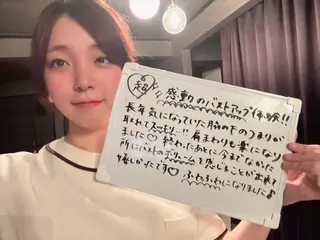 超 感動のバストアップ体験!!
長年気になっていた脇の下のつまりが
取れてスッキリ…!! 肩まわりも楽になり
ました♡ 終わったあとに今までなかった
所にバストのボリュームを感じることが出来て
嬉しかったです♡ ふわふわになりました♪